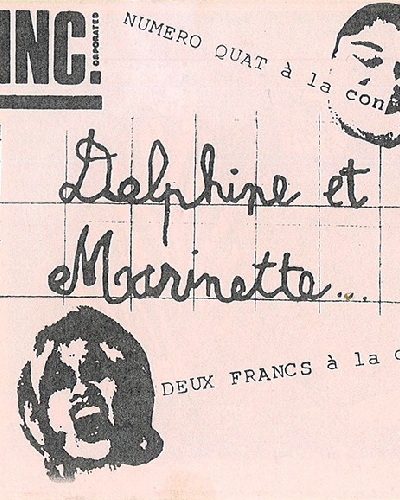 INC.
CORPORATED
NUMERO QUAT à la con
Delphine et
Marinette...
DEUX FRANCS à la c